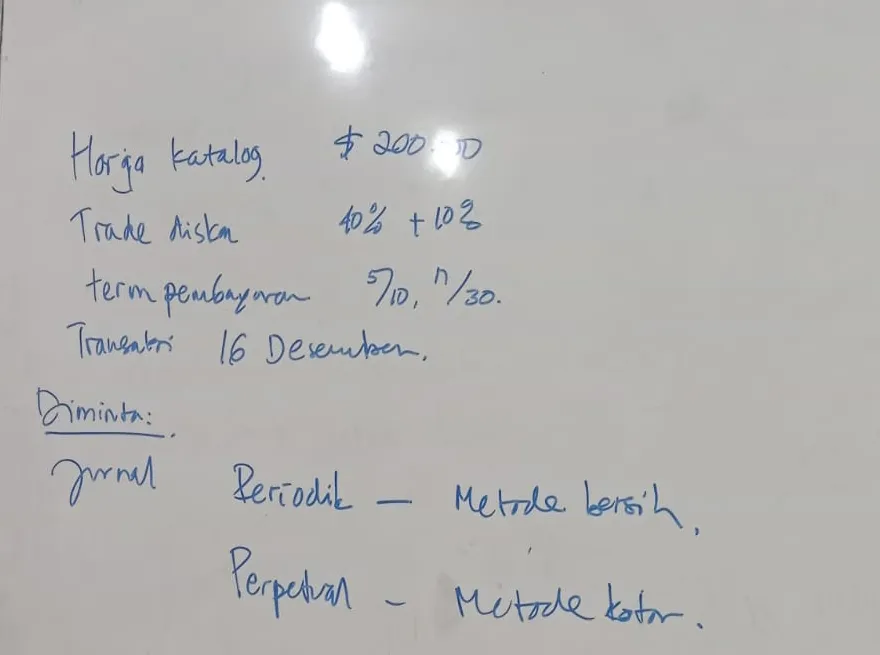 Harga katalog. $ 200.00
Trade diskon 40% + 10%
term pembayaran 5/10, n/30.
Transaksi 16 Desember.
Diminta:
Jurnal Periodik — Metode bersih.
Perpetual - Metode kotor.